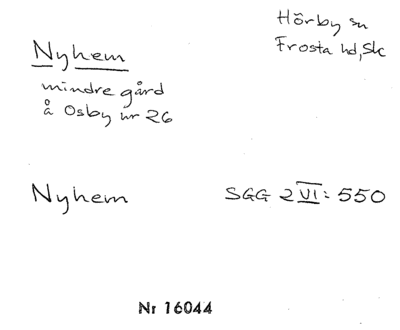 Nyhem
Hörby sn
Frosta hd, Sk
mindre gård
å Osby nr 26
Nyhem
SGG 2 VI: 550
Nr 16044